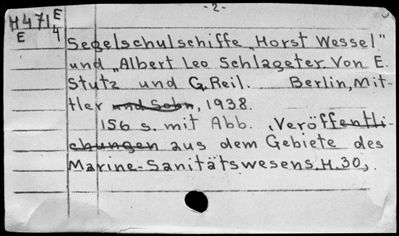 -2-
H47/E
E 4
Segelschulschiffe „Horst Wessel"
und „Albert Leo Schlageter. Von E.
Stutz und G. Reil. Berlin, Mit-
tler und Sohn, 1938.
156 s. mit Abb. „Veröffentli-
chungen aus dem Gebiete des
Marine-Sanitätswesens. H. 30„.